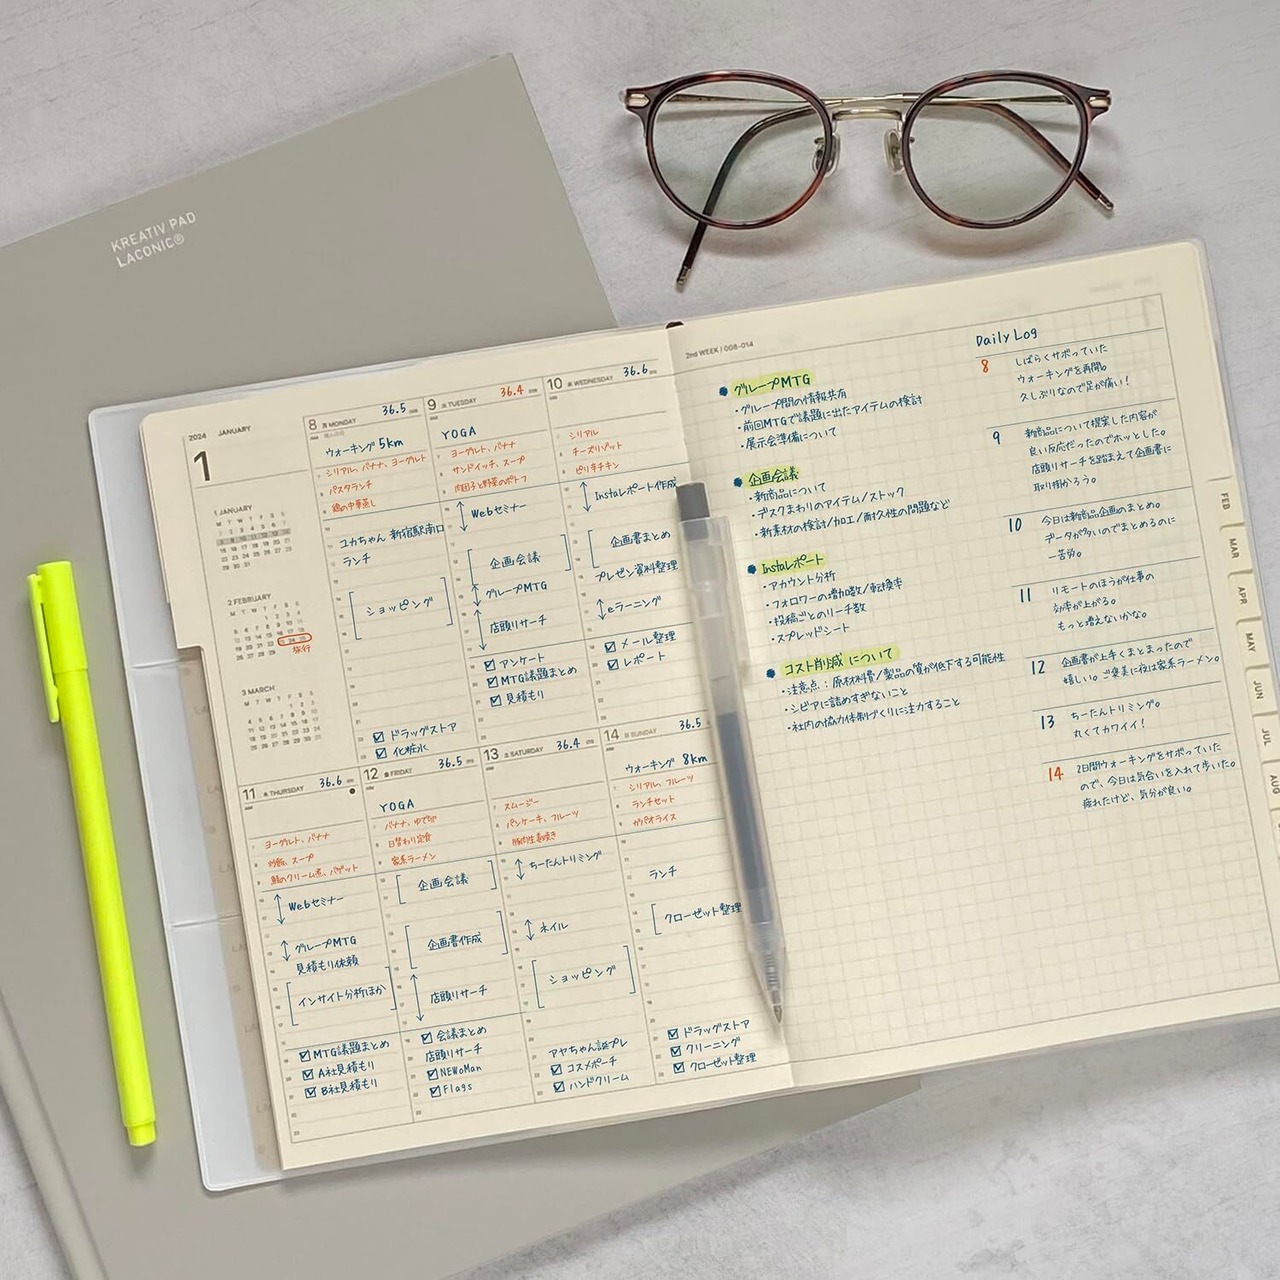 KREATIV PAD
LACONIC®
2024 JANUARY
1
1 JANUARY
2 FEBRUARY
旅行
3 MARCH
8 月 MONDAY 36.5
ウォーキング 5km
シリアル、バナナ、ヨーグルト
パスタランチ
鶏の中華蒸し
ユカちゃん 新宿駅南口
ランチ
ショッピング
ドラッグストア
化粧水
9 火 TUESDAY 36.4
YOGA
ヨーグルト、バナナ
サンドイッチ、スープ
肉団子と野菜のポトフ
Webセミナー
企画会議
グループMTG
店頭リサーチ
アンケート
MTG議題まとめ
見積もり
10 水 WEDNESDAY 36.6
シリアル
チーズリゾット
ピリ辛チキン
Instaレポート作成
企画書まとめ
プレゼン資料整理
eラーニング
メール整理
レポート
11 木 THURSDAY 36.6
ヨーグルト、バナナ
炒飯、スープ
鮭のクリーム煮、バゲット
Webセミナー
グループMTG
見積もり依頼
インサイト分析ほか
MTG議題まとめ
A社見積もり
B社見積もり
12 金 FRIDAY 36.5
YOGA
バナナ、ゆで卵
日替わり定食
家系ラーメン
企画会議
企画書作成
店頭リサーチ
会議まとめ
店頭リサーチ
NEWoMan
Flags
13 土 SATURDAY 36.4
スムージー
パンケーキ、フルーツ
豚肉生姜焼き
ちーたんトリミング
ネイル
ショッピング
アヤちゃん誕プレ
コスメポーチ
ハンドクリーム
14 日 SUNDAY 36.5
ウォーキング 8km
シリアル、フルーツ
ランチセット
ガパオライス
ランチ
クローゼット整理
ドラッグストア
クリーニング
クローゼット整理
2nd WEEK / 008-014
グループMTG
・グループ間の情報共有
・前回MTGで議題に出たアイテムの検討
・展示会準備について
企画会議
・新商品について
・デスクまわりのアイテム/ストック
・新素材の検討/加工/耐久性の問題など
Instaレポート
・アカウント分析
・フォロワーの増加数/転換率
・投稿ごとのリーチ数
・スプレッドシート
コスト削減 について
・注意点：原材料費/製品の質が低下する可能性
・シビアに詰めすぎないこと
・社内の協力体制づくりに注力すること
Daily Log
8 しばらくサボっていた
ウォーキングを再開。
久しぶりなので足が痛い！
9 新商品について提案した内容が
良い反応だったのでホッとした。
店頭リサーチを踏まえて企画書に
取り掛かろう。
10 今日は新商品企画のまとめ。
データが多いのでまとめるのに
一苦労。
11 リモートのほうが仕事の
効率が上がる。
もっと増えないかな。
12 企画書が上手くまとまったので
嬉しい。ご褒美に夜は家系ラーメン。
13 ちーたんトリミング。
丸くてカワイイ！
14 2日間ウォーキングをサボっていた
ので、今日は気合いを入れて歩いた。
疲れたけど、気分が良い。
FEB
MAR
APR
MAY
JUN
JUL
AUG